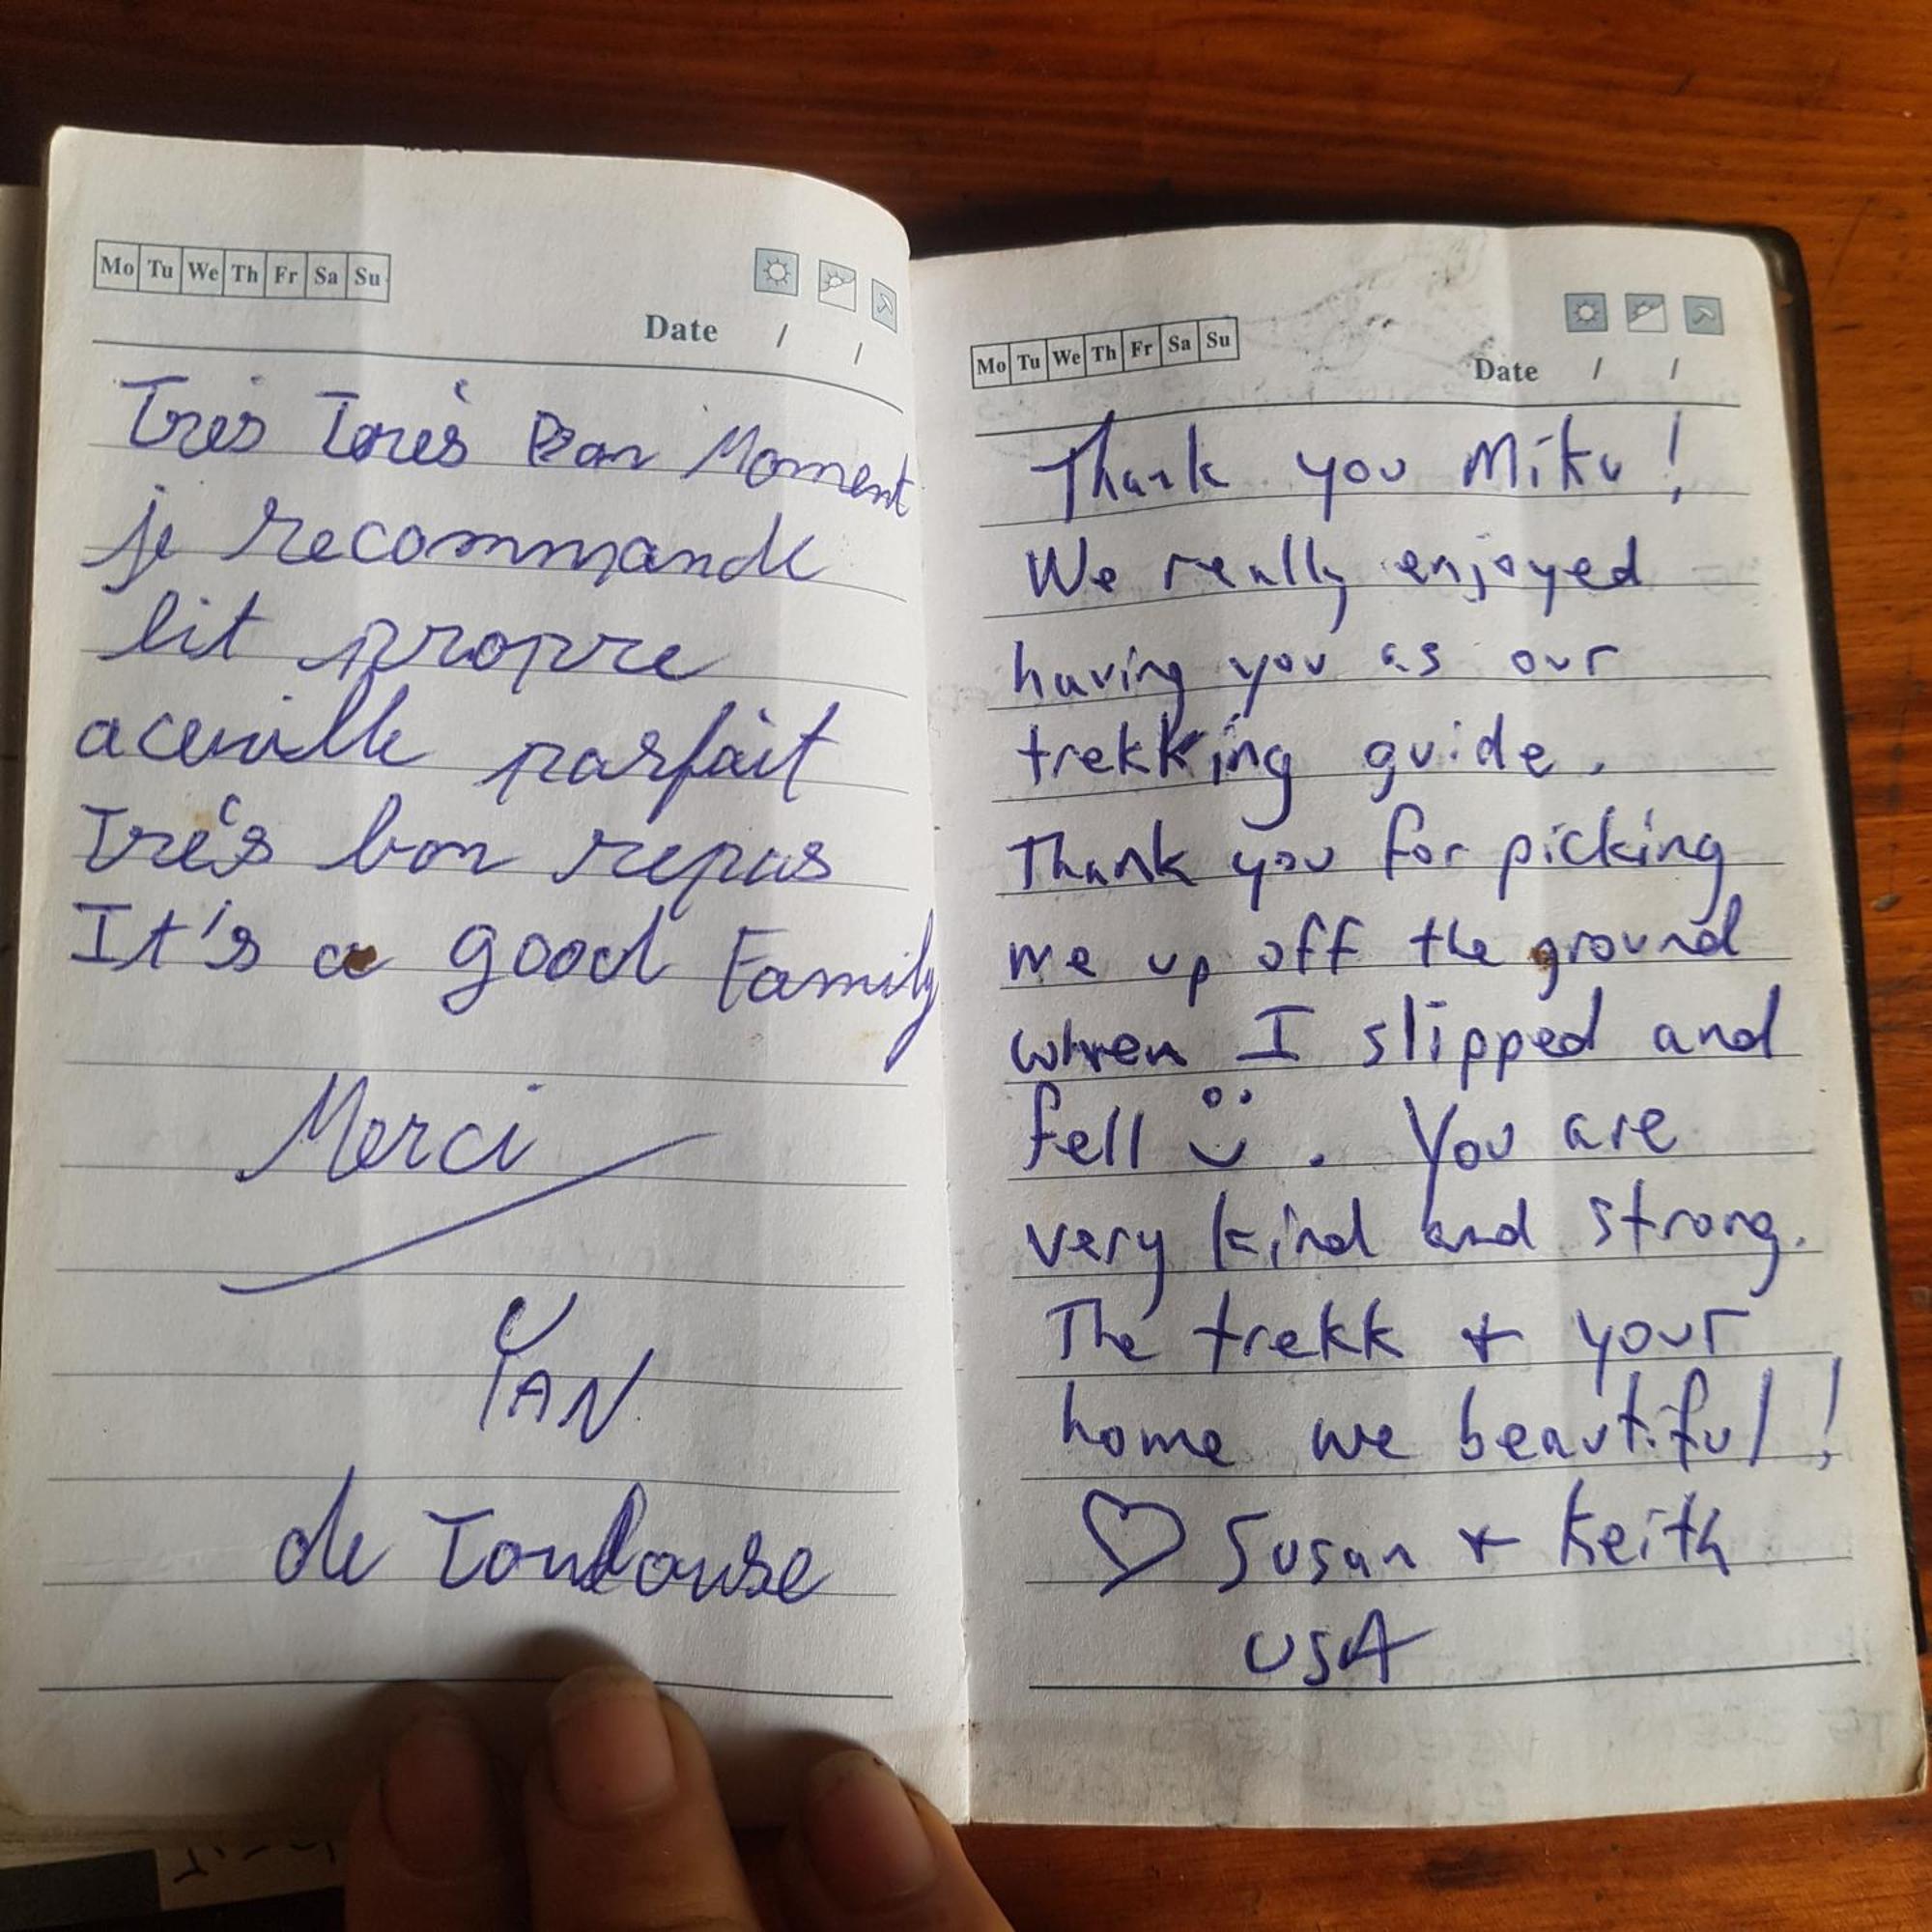 Mo Tu We Th Fr Sa Su
Date / /
Très Très Bon Moment
je recommande
lit propre
aceuille parfait
Très bon repas
It's a good Family
Merci
YAN
de Toulouse
Mo Tu We Th Fr Sa Su
Date / /
Thank you Miku!
We really enjoyed
having you as our
trekking guide.
Thank you for picking
me up off the ground
when I slipped and
fell . You are
very kind and strong.
The trekk + your
home we beautiful!
Susan + Keith
USA